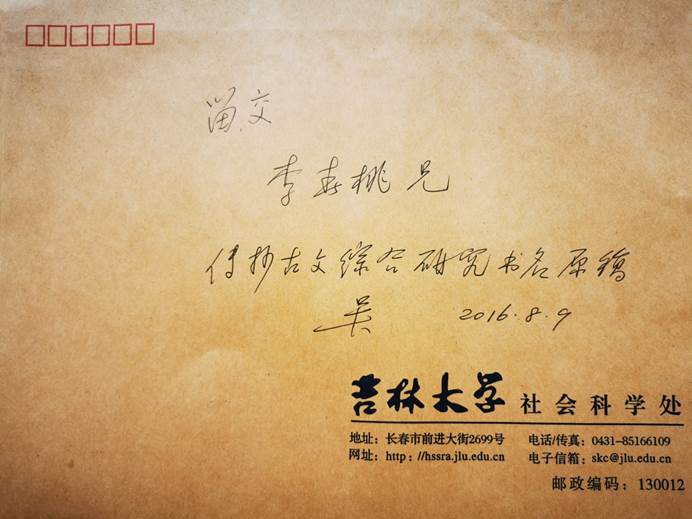 留交
李春桃兄
传抄古文综合研究书名原稿
吴 2016.8.9
吉林大学 社会科学处
地址：长春市前进大街2699号 电话/传真：0431-85166109
网址：http://hssra.jlu.edu.cn 电子信箱：skc@jlu.edu.cn
邮政编码：130012